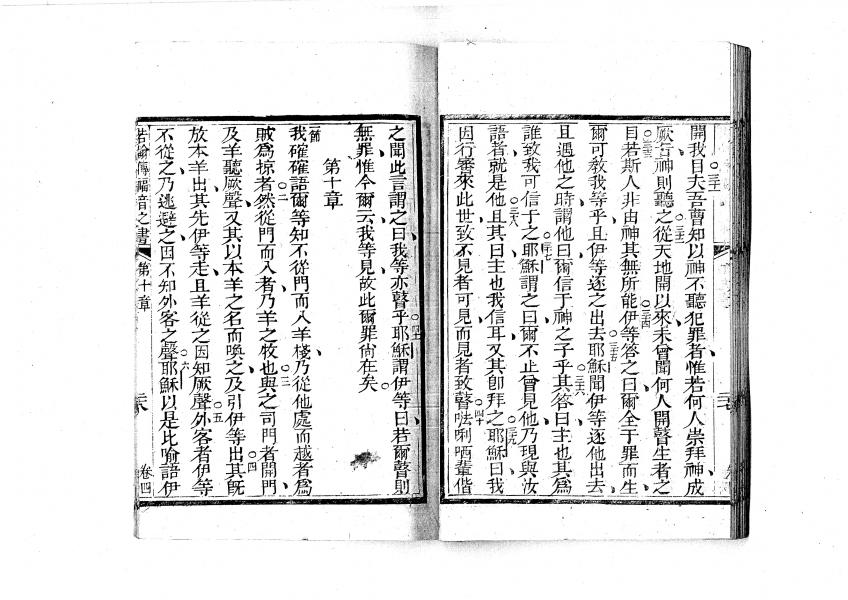 開我目夫吾曹知以神不聽犯罪者惟若何人崇拜神成
厥旨神則聽之從天地開以來未曾聞何人開瞽生者之
目若斯人非由神其無所能伊等答之曰爾全于罪而生
爾可教我等乎且伊等逐之出去耶穌聞伊等逐他出去
且遇他之時謂他曰爾信于神之子乎其答曰主也其為
誰致我可信于之耶穌謂之曰爾不止曾見他乃現與汝
語者就是他且其曰主也我信耳又其卽拜之耶穌曰我
因行審來此世致不見者可見而見者致瞽𠵽唎哂輩偕
之聞此言謂之曰我等亦瞽乎耶穌謂伊等曰若爾瞽則
無罪惟今爾云我等見故此爾罪尙在矣
第十章
一節
我確確語爾等知不從門而入羊棧乃從他處而越者為
賊為掠者然從門而入者乃羊之牧也與之司門者開門
及羊聽厥聲又其以本羊之名而喚之及引伊等出其旣
放本羊出其先伊等走且羊從之因知厥聲外客者伊等
不從之乃逃避之因不知外客之聲耶穌以是比喻語伊
若翰傳福音之書 第十章 卷四